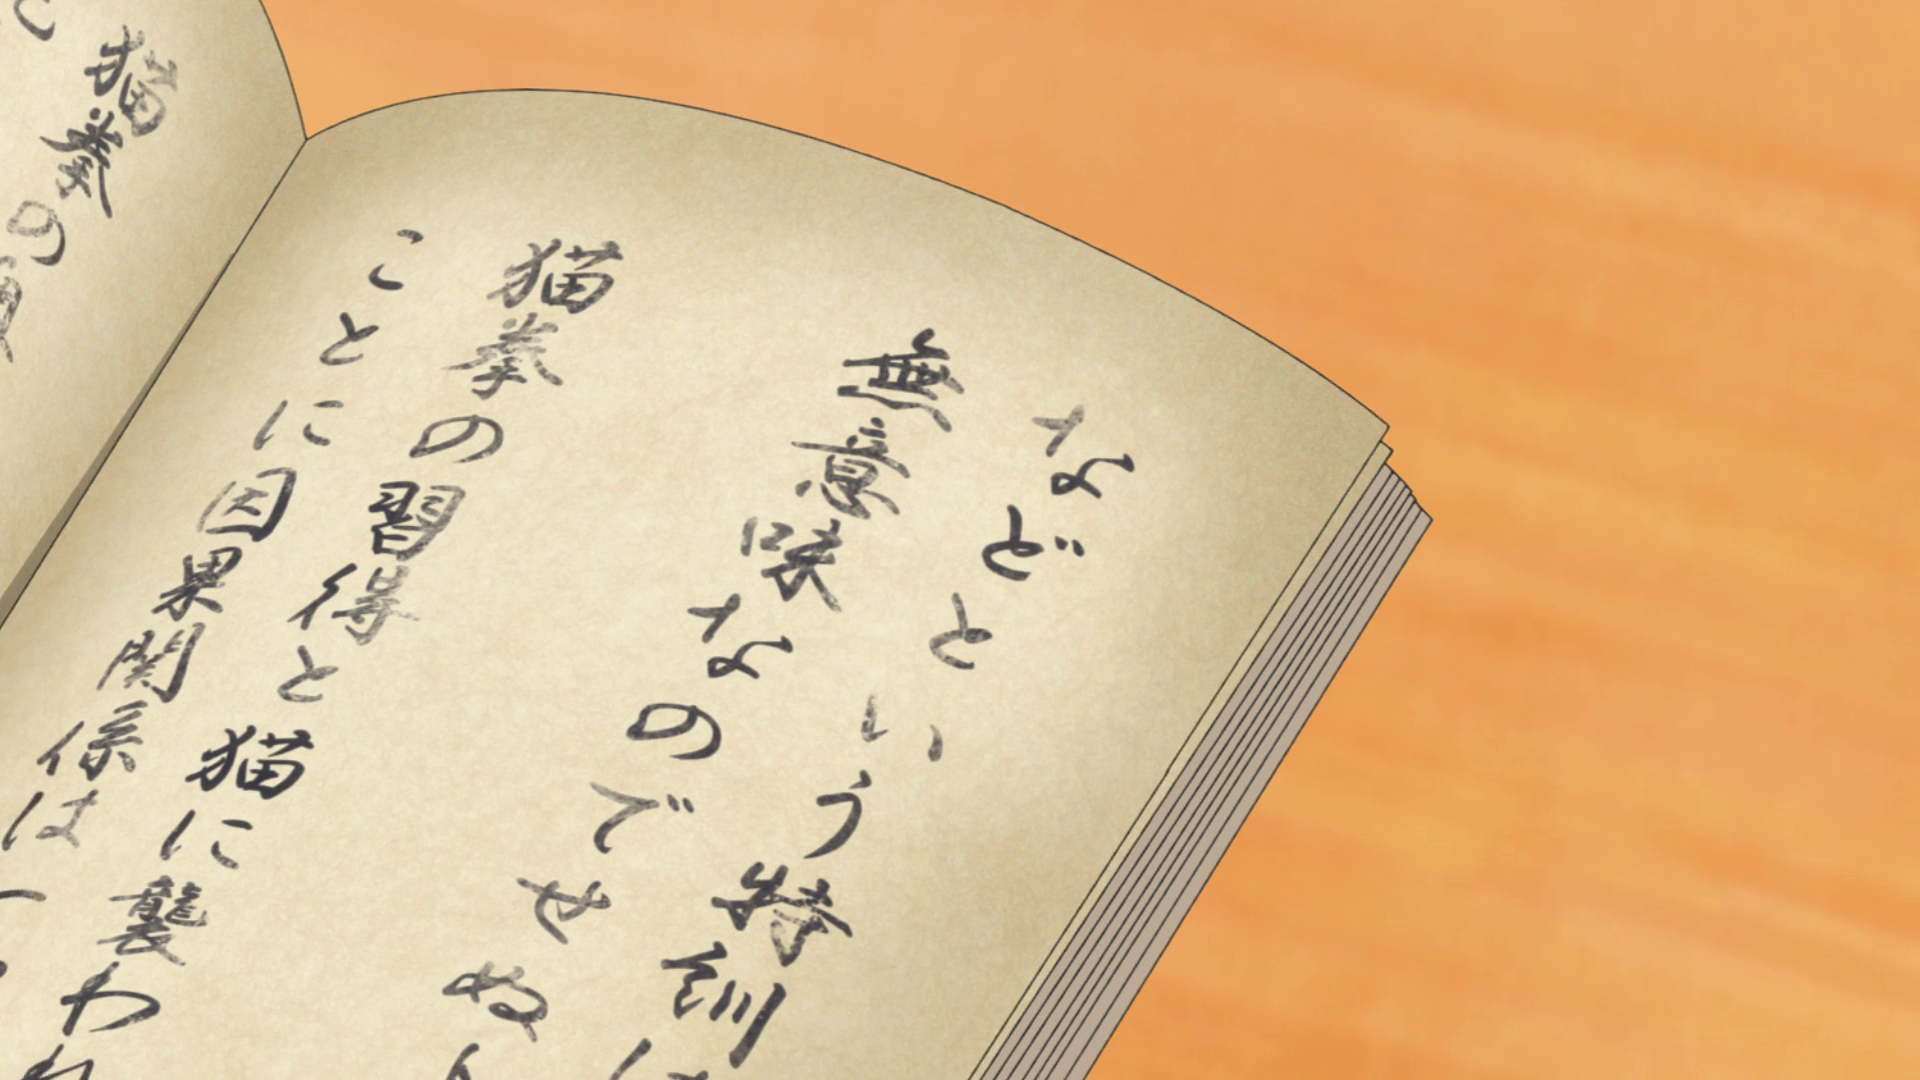 などという特訓は
無意味なのでせぬ
猫拳の習得と猫に襲われ
ことに因果関係は一
猫拳の